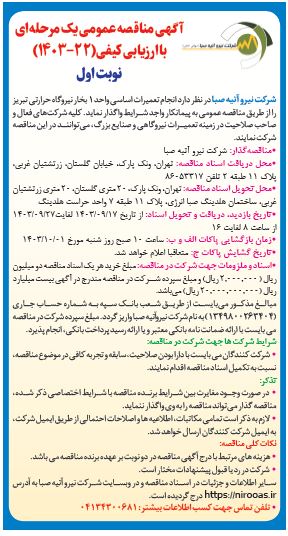 شرکت نیرو آتیه صبا
آگهی مناقصه عمومی یک مرحله‌ای
با ارزیابی کیفی (۲۲-۱۴۰۳)
نوبت اول
شرکت نیرو آتیه صبا در نظر دارد انجام تعمیرات اساسی واحد ۱ بخار نیروگاه حرارتی تبریز
را از طریق مناقصه عمومی به پیمانکار واجد شرایط واگذار نماید. کلیه شرکت‌های فعال و
صاحب صلاحیت در زمینه تعمیرات نیروگاهی و صنایع بزرگ، می‌توانند در این مناقصه
شرکت نمایند.
•مناقصه‌گذار: شرکت نیرو آتیه صبا
•محل دریافت اسناد مناقصه: تهران، ونک پارک، خیابان گلستان، زرتشتیان غربی،
پلاک ۱۱ طبقه ۲ تلفن ۸۶۰۵۳۳۱۷
•محل تحویل اسناد مناقصه: تهران، ونک پارک، ۲۰متری گلستان، ۲۰متری زرتشتیان
غربی، ساختمان هلدینگ صبا انرژی، پلاک ۱۱ طبقه ۷ واحد حراست هلدینگ
•تاریخ بازدید، دریافت و تحویل اسناد: از تاریخ ۱۴۰۳/۰۹/۱۷ لغایت۱۴۰۳/۰۹/۲۷
از ساعت ۸ لغایت ۱۶
•زمان بازگشایی پاکات الف و ب: ساعت ۱۰ صبح روز شنبه مورخ ۱۴۰۳/۱۰/۰۱
•تاریخ گشایش پاکات ج: متعاقبا اعلام خواهد شد.
•اسناد و ملزومات جهت شرکت در مناقصه: مبلغ خرید هر یک اسناد مناقصه دو میلیون
ریال (۲.۰۰۰.۰۰۰ ریال) و مبلغ سپرده شرکت در مناقصه مندرج در آگهی بیست میلیارد
ریال (۲۰.۰۰۰.۰۰۰.۰۰۰ ریال) می‌باشد.
مبالغ مذکور می‌بایست از طریق شعب بانک سپه به شماره حساب جاری
(۱۳۴۹۸۰۰۲۶۳۴۰۴) به نام شرکت نیروآتیه صبا واریز گردد. مبلغ سپرده شرکت در مناقصه
می بایست با ارائه ضمانت نامه بانکی معتبر و یا ارائه رسید پرداخت بانکی، انجام پذیرد.
شرایط شرکت ها جهت شرکت در مناقصه:
• شرکت کنندگان می بایست با دارا بودن صلاحیت، سابقه و تجربه کافی در موضوع مناقصه،
نسبت به تکمیل اسناد مناقصه اقدام نمایند.
تذکر:
• در صورت وجود مغایرت بین شرایط برنده مناقصه با شرایط اختصاصی ذکر شده،
مناقصه گذار می تواند مناقصه را به وی واگذار ننماید.
• لازم به ذکر است تمامی مکاتبات، اطلاعیه ها و اصلاحات احتمالی از طریق ایمیل شرکت،
به ایمیل شرکت کنندگان ارسال خواهد شد.
نکات کلی مناقصه:
• هزینه های مرتبط با درج آگهی مناقصه در دو نوبت بر عهده برنده مناقصه می باشد.
• شرکت در رد یا قبول پیشنهادات مختار است.
سایر اطلاعات و جزئیات در اسناد مناقصه و در وبسایت شرکت نیرو آتیه صبا به آدرس
https://nirooas.ir درج گردیده است.
• تلفن تماس جهت کسب اطلاعات بیشتر: ۰۴۱۳۴۳۰۰۶۸۱